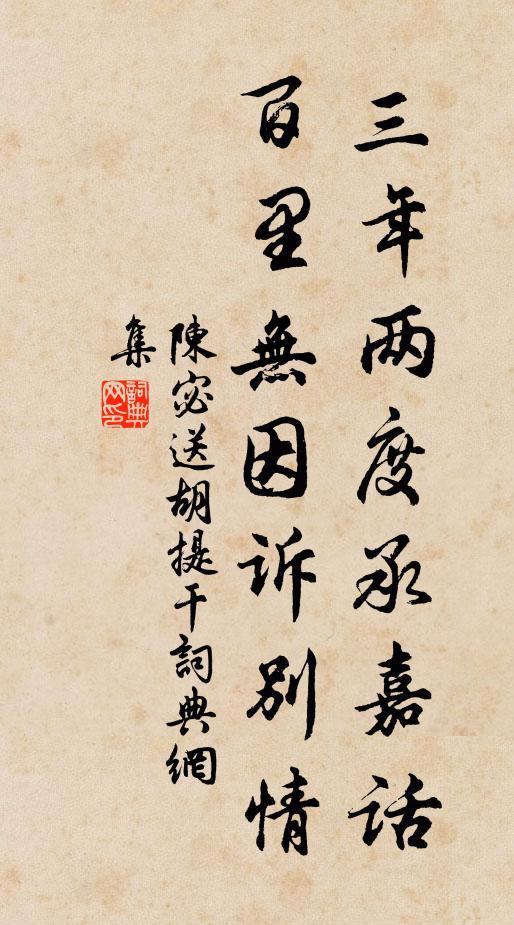 三年两度承嘉话
百里無因訴别情
陳宓送胡提干詞典網
集
詞典網印